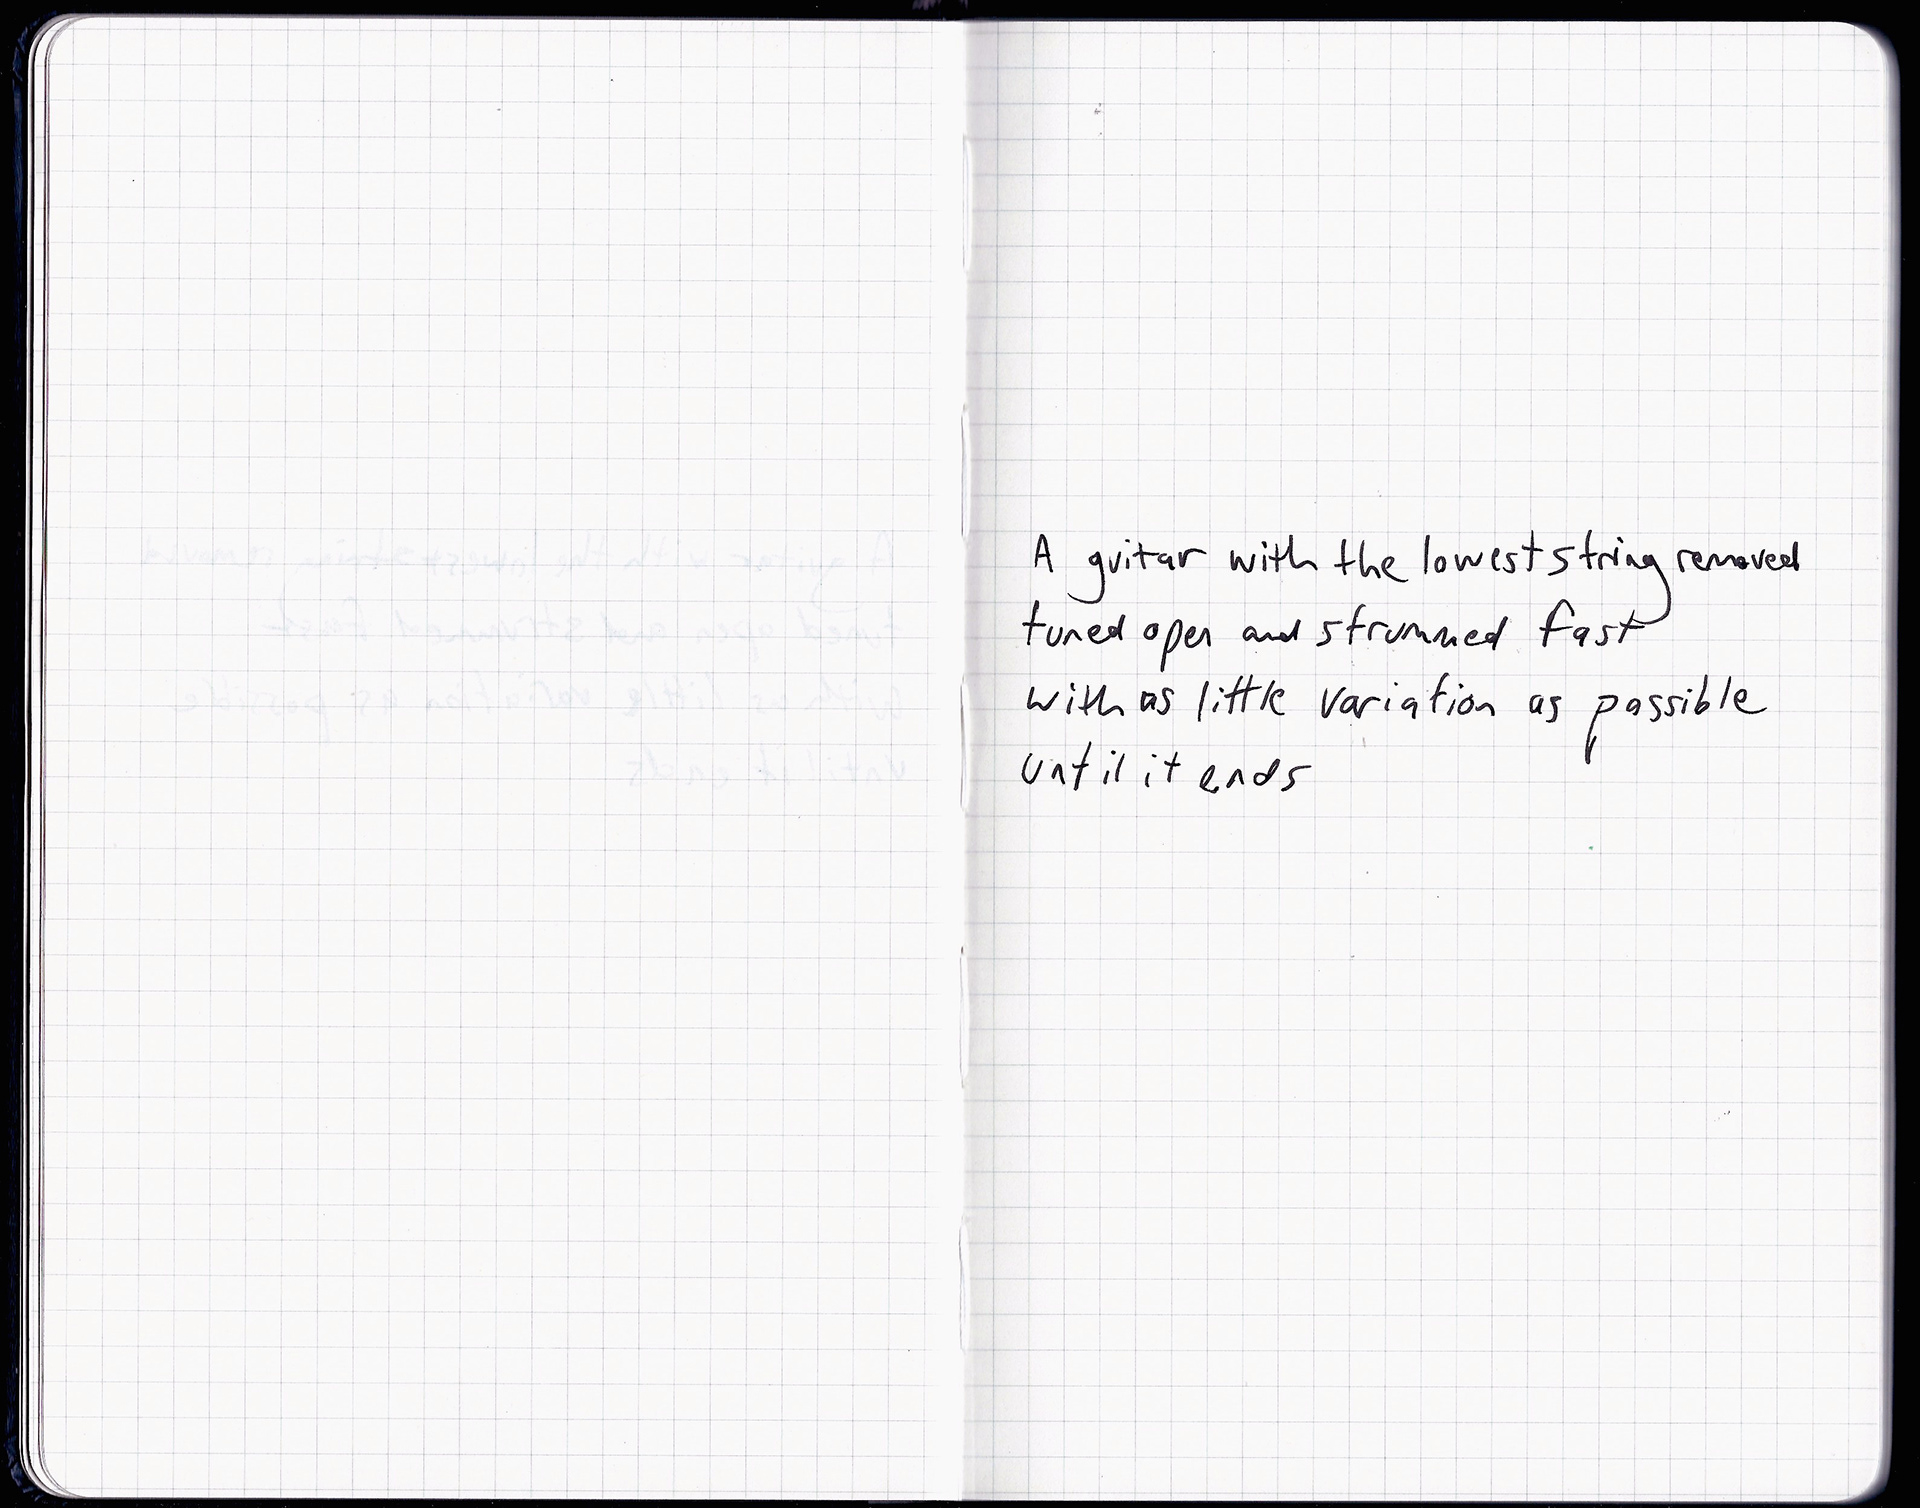 A guitar with the lowest string removed
tuned open and strummed fast
with as little variation as possible
until it ends